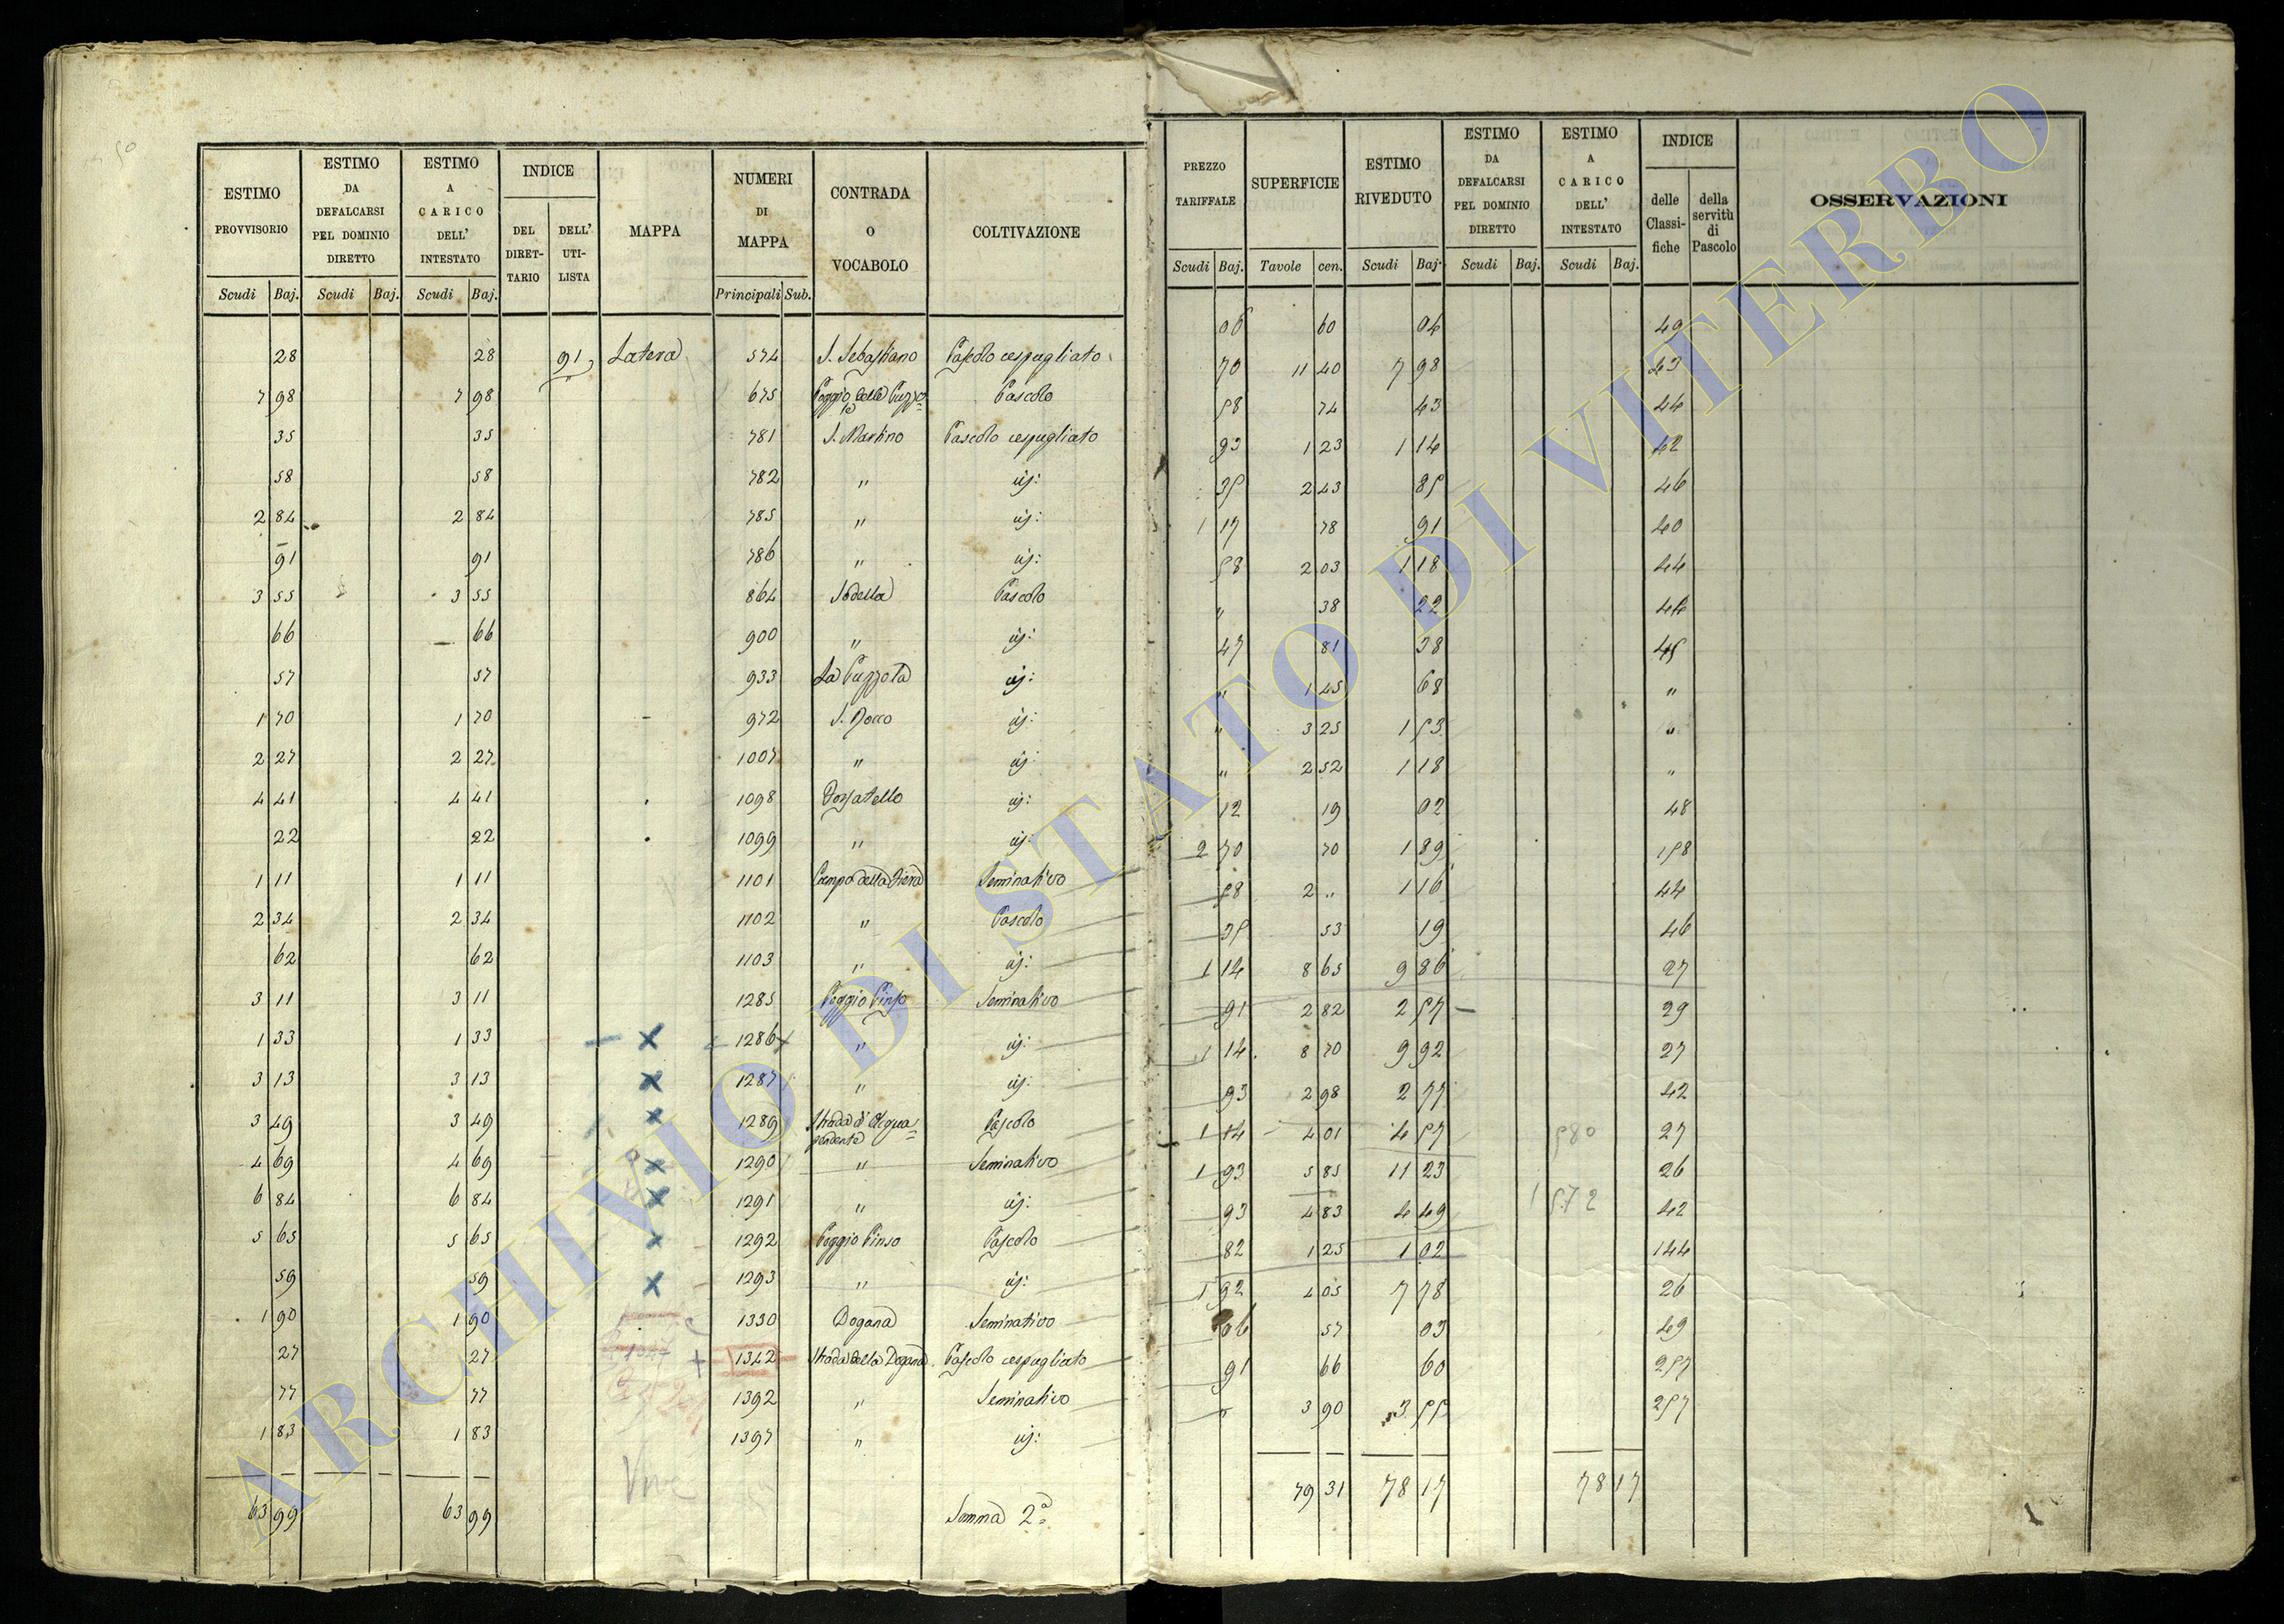 ESTIMO PROVVISORIO | ESTIMO DA DEFALCARSI PEL DOMINIO DIRETTO | ESTIMO A CARICO DELL' INTESTATO | INDICE | MAPPA | NUMERI DI MAPPA | CONTRADA O VOCABOLO | COLTIVAZIONE | PREZZO TARIFFALE | SUPERFICIE | ESTIMO RIVEDUTO | ESTIMO DA DEFALCARSI PEL DOMINIO DIRETTO | ESTIMO A CARICO DELL' INTESTATO | INDICE | OSSERVAZIONI
DEL DIRET-TARIO | DELL' UTI-LISTA | delle Classi-fiche | della servitù di Pascolo
Scudi | Baj. | Scudi | Baj. | Scudi | Baj. | Principali | Sub. | Scudi | Baj. | Tavole | cen. | Scudi | Baj. | Scudi | Baj. | Scudi | Baj.
28 | 28 | 91 | Latera | 574 | S. Sebastiano | Pascolo cespugliato | 06 | 60 | 04 | 49
7 98 | 7 98 | 675 | Poggio della Puzzo= | Pascolo | 70 | 11 40 | 7 98 | 43
35 | 35 | 781 | S. Martino | Pascolo cespugliato | 58 | 74 | 43 | 44
58 | 58 | 782 | " | id: | 93 | 1 23 | 1 14 | 42
2 84 | 2 84 | 785 | " | id: | 35 | 2 43 | 85 | 46
91 | 91 | 786 | " | id: | 1 17 | 78 | 91 | 40
3 55 | 3 55 | 864 | Sodella | Pascolo | 58 | 2 03 | 1 18 | 44
66 | 66 | 900 | " | id: | " | 38 | 22 | 44
57 | 57 | 933 | La Puzzola | id: | 47 | 81 | 38 | 45
1 70 | 1 70 | 972 | S. Rocco | id: | " | 1 45 | 68 | "
2 27 | 2 27 | 1007 | " | id: | " | 3 25 | 1 53 | "
4 41 | 4 41 | 1098 | Fossatello | id: | " | 2 52 | 1 18 | "
22 | 22 | 1099 | " | id: | 12 | 19 | 02 | 48
1 11 | 1 11 | 1101 | Campo della Fiera | Seminativo | 2 70 | 70 | 1 89 | 158
2 34 | 2 34 | 1102 | " | Pascolo | 58 | 2 " | 1 16 | 44
62 | 62 | 1103 | " | id: | 35 | 53 | 19 | 46
3 11 | 3 11 | 1285 | Poggio Pinzo | Seminativo | 1 14 | 8 65 | 9 86 | 27
1 33 | 1 33 | 1286 | " | id: | 91 | 2 82 | 2 57 | 29
3 13 | 3 13 | 1287 | " | id: | 1 14 | 8 70 | 9 92 | 27
3 49 | 3 49 | 1289 | Strada d'Acqua=pendente | Pascolo | 93 | 2 98 | 2 77 | 42
4 69 | 4 69 | 1290 | " | Seminativo | 1 14 | 4 01 | 4 57 | 580 | 27
6 84 | 6 84 | 1291 | " | id: | 1 93 | 5 85 | 11 23 | 26
5 65 | 5 65 | 1292 | Poggio Pinzo | Pascolo | 93 | 4 83 | 4 49 | 1 572 | 42
59 | 59 | 1293 | " | id: | 82 | 1 25 | 1 02 | 144
1 90 | 1 90 | 1330 | Dogana | Seminativo | 1 92 | 4 05 | 7 78 | 26
27 | 27 | 1347 | 1342 | Strada della Dogana | Pascolo cespugliato | 06 | 57 | 03 | 49
77 | 77 | 1392 | " | Seminativo | 91 | 66 | 60 | 257
1 83 | 1 83 | 1397 | " | id: | " | 3 90 | 3 55 | 257
63 99 | 63 99 | Somma 2ª | 79 31 | 78 17 | 78 17
ARCHIVIO DI STATO DI VITERBO